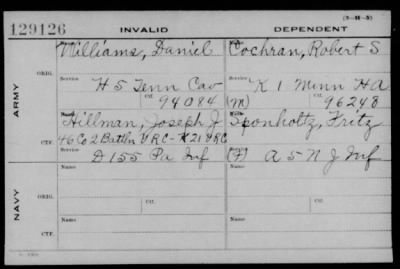 (3-M-3)
129126 INVALID DEPENDENT
Williams, Daniel Cochran, Robert S
ORIG. Service H 5 Tenn Cav Service K 1 Minn HA
Ctf. 94084 (M) Ctf. 96248
ARMY
Hillman, Joseph J Sponholtz, Fritz
CTF. 46 Co 2 Battln VRC - K 21 VRC
D 155 Pa Inf (F) A 5 N J Inf
Name Name
ORIG. Service Ctf. Service Ctf.
NAVY
Name Name
CTF. Service Service